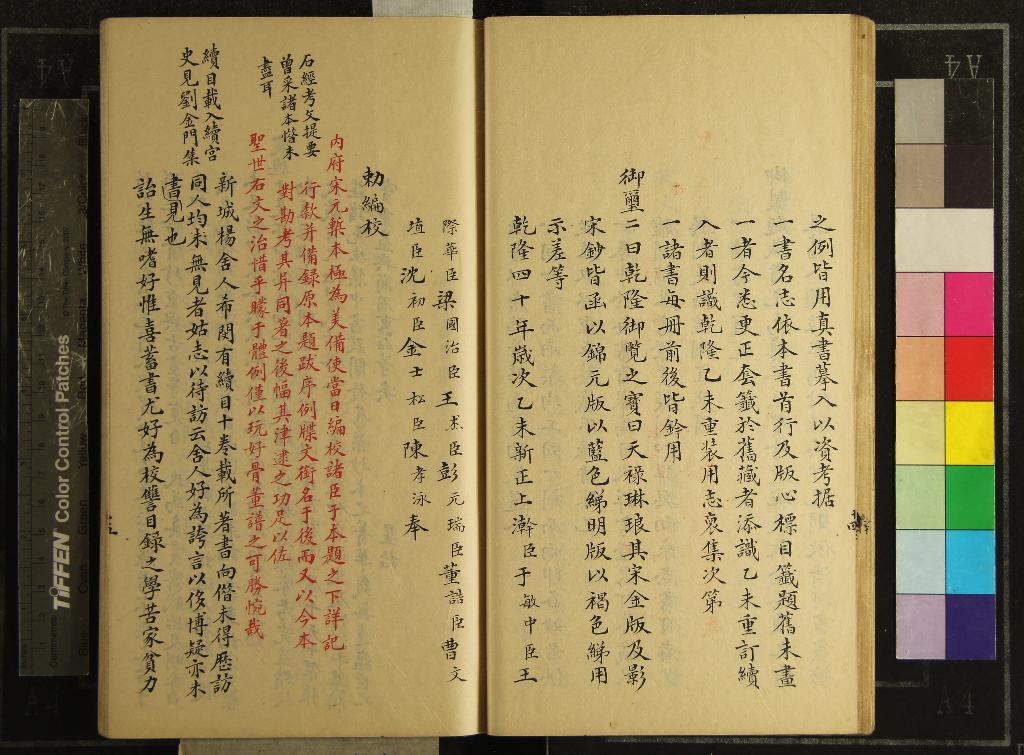 之例皆用真書摹入以資考据
一書名志依本書首行及版心標目籤題舊未畫
一者今悉更正套籤於舊藏者添識乙未重訂續
入者則識乾隆乙未重装用志裒集次第
一諸書每册前後皆鈐用
御璽二曰乾隆御覽之寶曰天禄琳琅其宋金版及影
宋鈔皆函以錦元版以藍色綈明版以褐色綈用
示差等
乾隆四十年歲次乙未新正上澣臣于敏中臣王
際華臣梁國治臣王杰臣彭元瑞臣董誥臣曹文
埴臣沈初臣金士松臣陳孝泳奉
勅編校
内府宋元槧本極為美備使當日編校諸臣于本題之下詳記
行款并備録原本題跋序例牒文銜名于後而又以今本
對勘考其异同著之後幅其津逮之功足以佐
聖世右文之治惜乎矇于體例僅以玩好骨董譜之可勝惋哉
石經考文提要
曾采諸本惜未
盡耳
新城楊舍人希閔有續目十卷載所著書向偕未得歷訪
同人均未無見者姑志以待訪云舍人好為誇言以侈博疑亦未
書見也
續目載入續宫
史見劉金門集
詒生無嗜好惟喜蓄書尤好為校讐目録之學苦家貧力
TIFFEN Color Control Patches
A4
A4
A4
A4